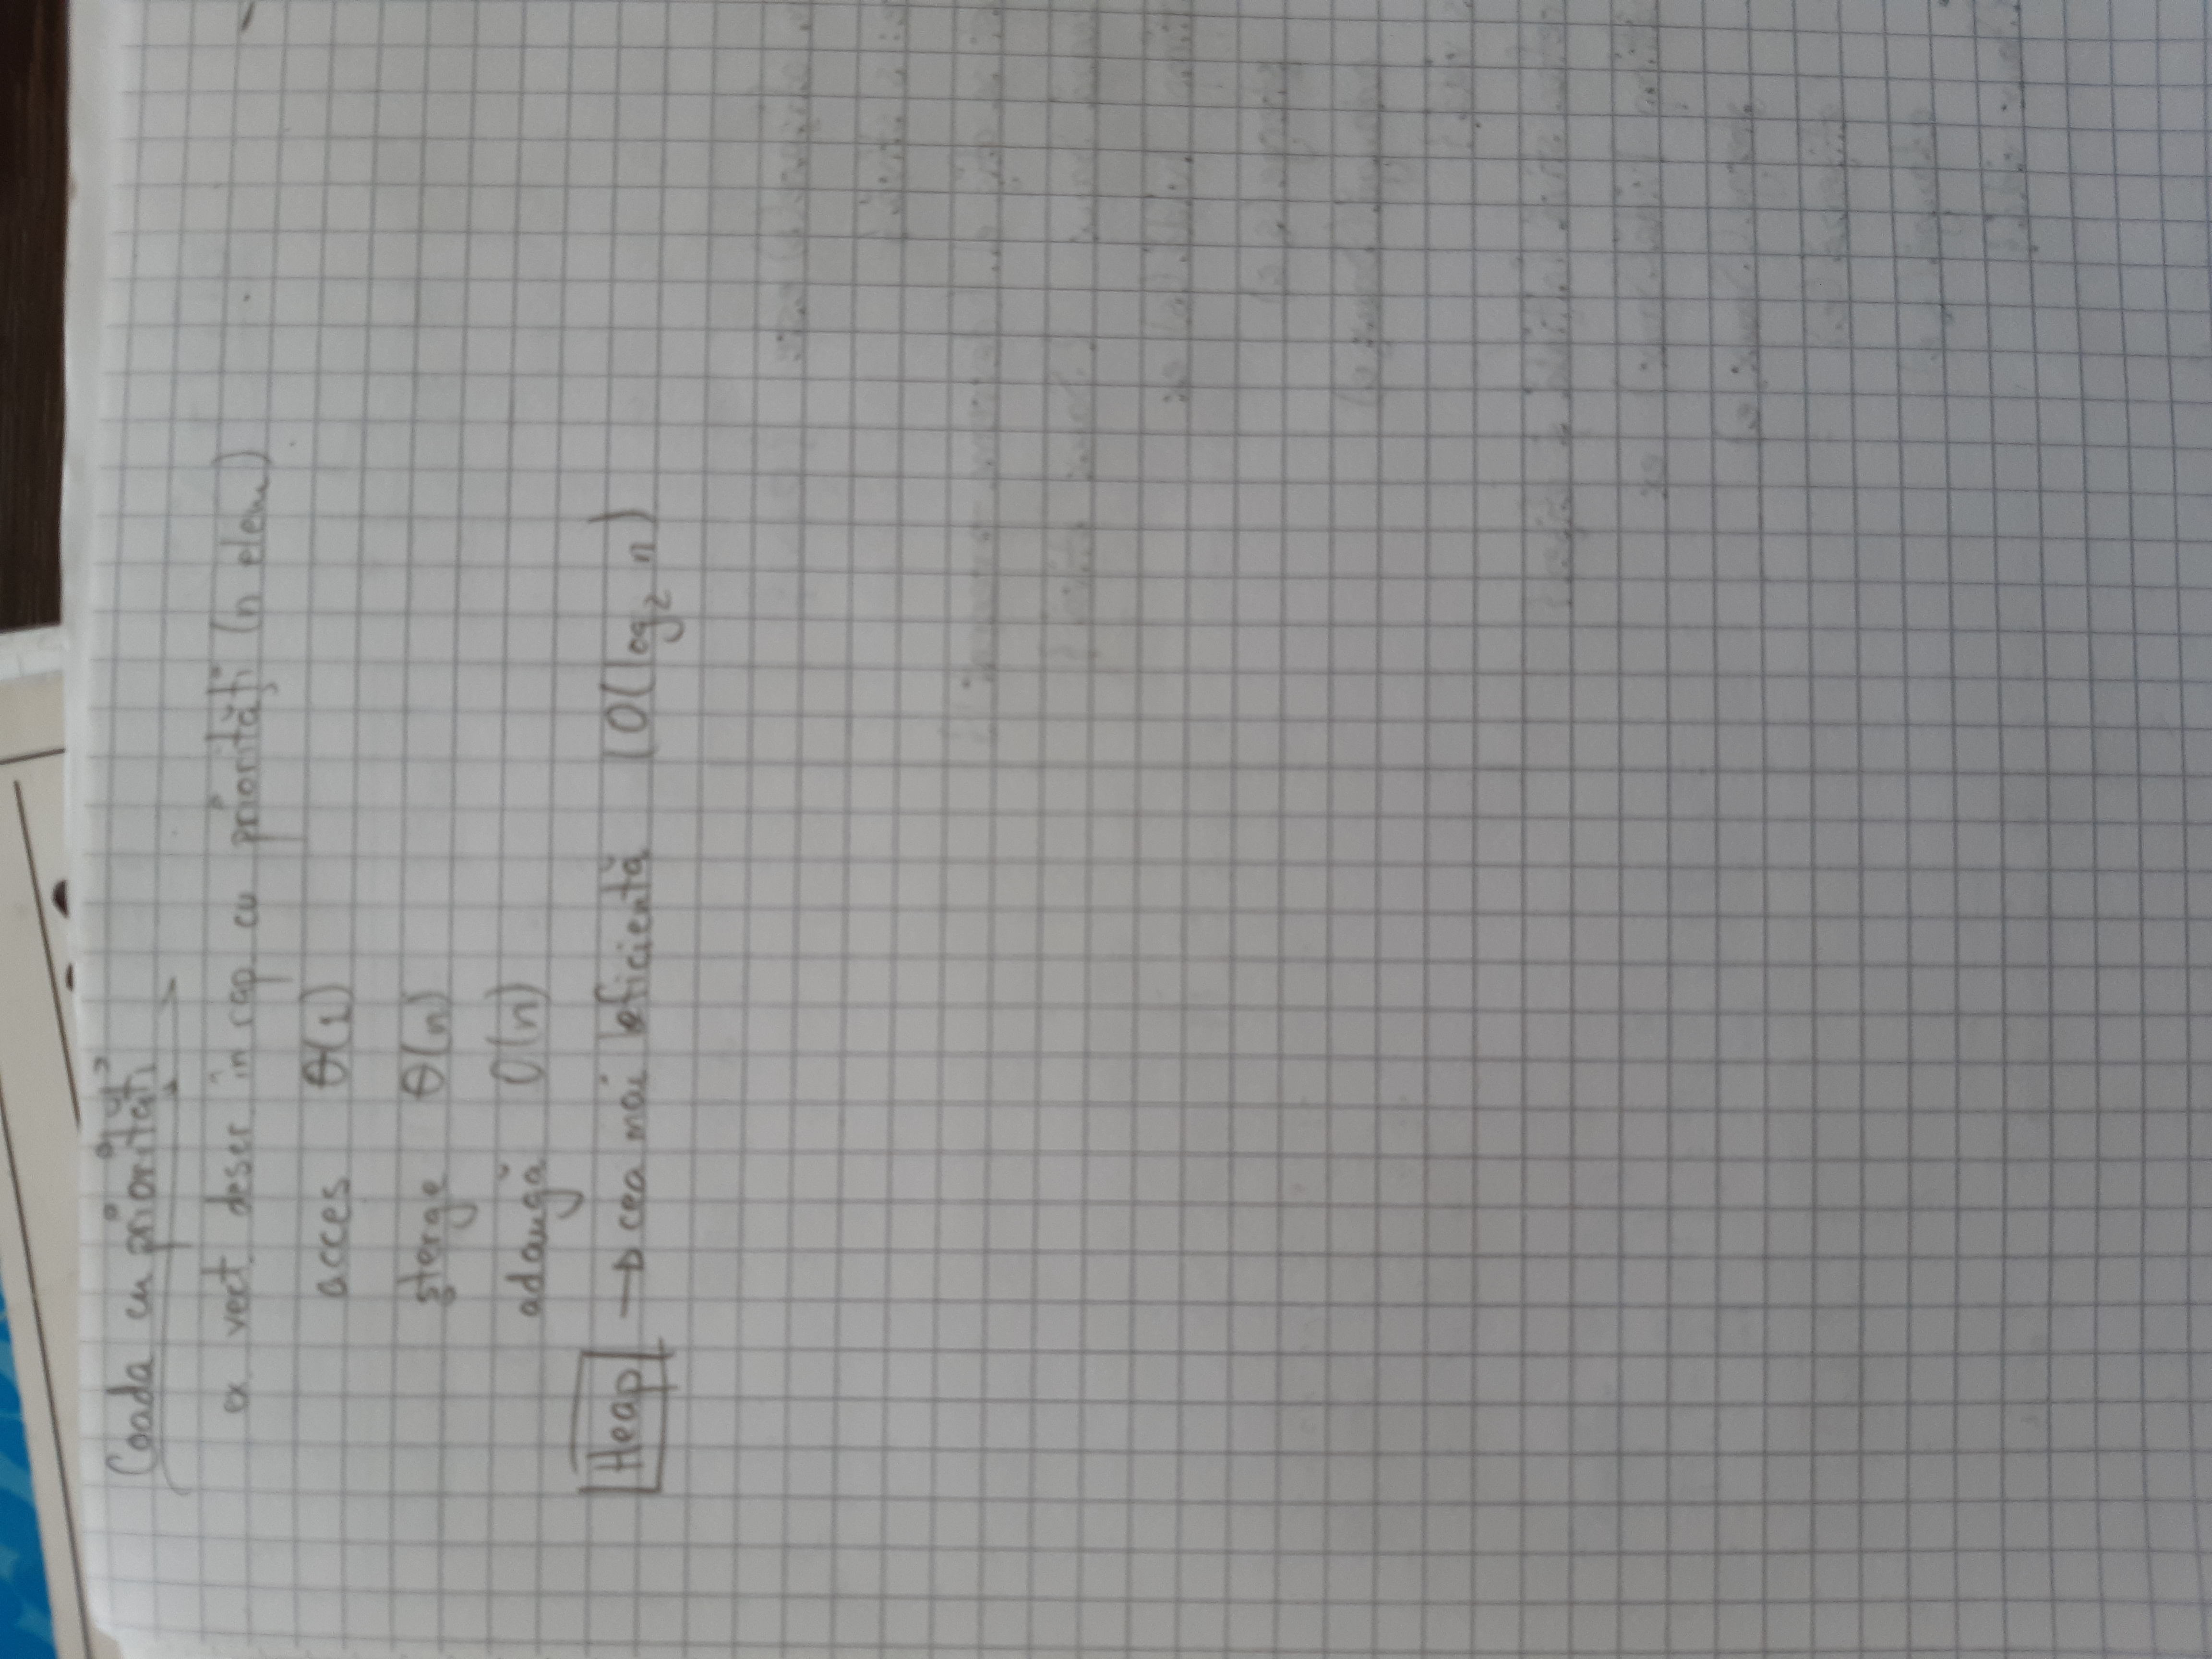 Coada cu priorități
ex vect. descr în rap cu priorități (n elem)
acces θ(1)
șterge θ(n)
adaugă O(n)
Heap → cea mai eficientă (O(log₂ n)